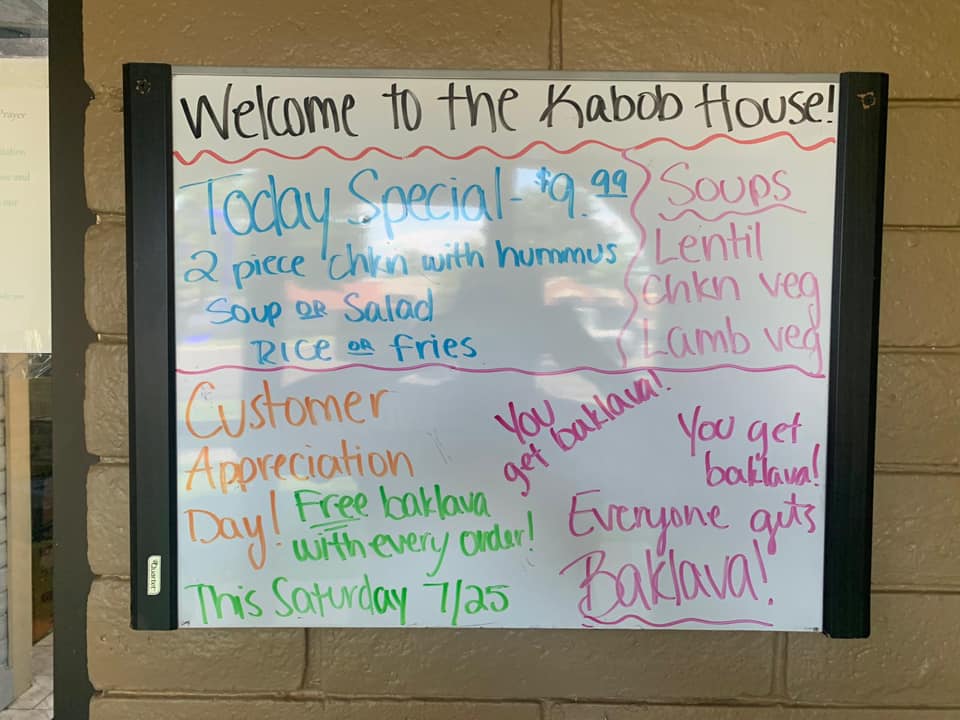 Welcome to the Kabob House!
Today Special - $9.99
2 piece chkn with hummus
Soup OR Salad
RICE OR fries
Soups
Lentil
Chkn veg
Lamb veg
Customer
Appreciation
Day!
Free baklava
with every order!
This Saturday 7/25
You
get baklava!
You get
baklava!
Everyone gets
Baklava!
Quartet
Prayer